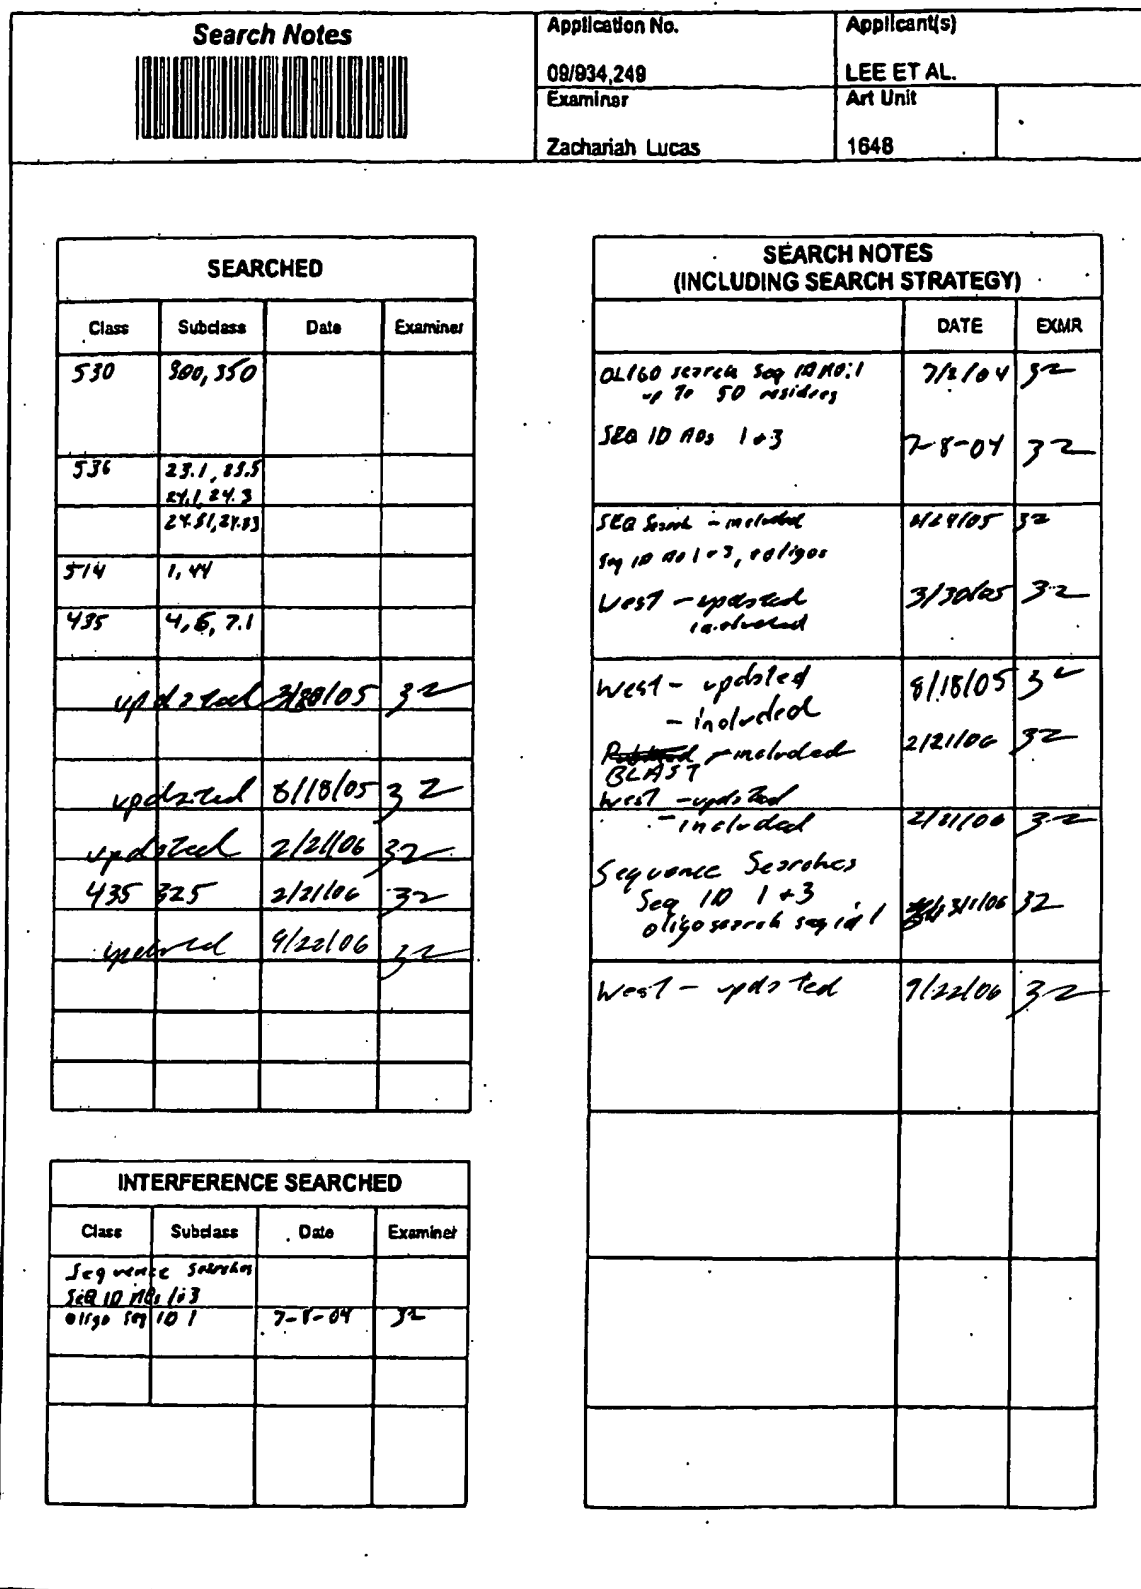 Search Notes
Application No.
09/934,249
Applicant(s)
LEE ET AL.
Examiner
Zachariah Lucas
Art Unit
1648
SEARCHED
Class Subclass Date Examiner
530 300, 350
536 23.1, 23.5
24.1, 24.3
24.51, 24.33
514 1, 44
435 4, 6, 7.1
updated 3/30/05 32
updated 8/18/05 32
updated 2/21/06 32
435 325 2/21/06 32
updated 9/22/06 32
INTERFERENCE SEARCHED
Class Subclass Date Examiner
Sequence Searches
SEQ ID NOs 1+3
oligo Seq ID 1 7-8-04 32
SEARCH NOTES
(INCLUDING SEARCH STRATEGY)
DATE EXMR
OLIGO search Seq ID NO:1 7/2/04 32
up to 50 residues
SEQ ID NOs 1+3 7-8-04 32
SEQ Search - included /05 32
Seq ID No 1+3, oligos
West - updated 3/30/05 32
included
West - updated 8/18/05 32
- included
- included 2/21/06 32
BLAST
West - updated
- included 2/21/06 32
Sequence Searches
Seq ID 1+3
oligo search seq id 1 3/1/06 32
West - updated 9/22/06 32